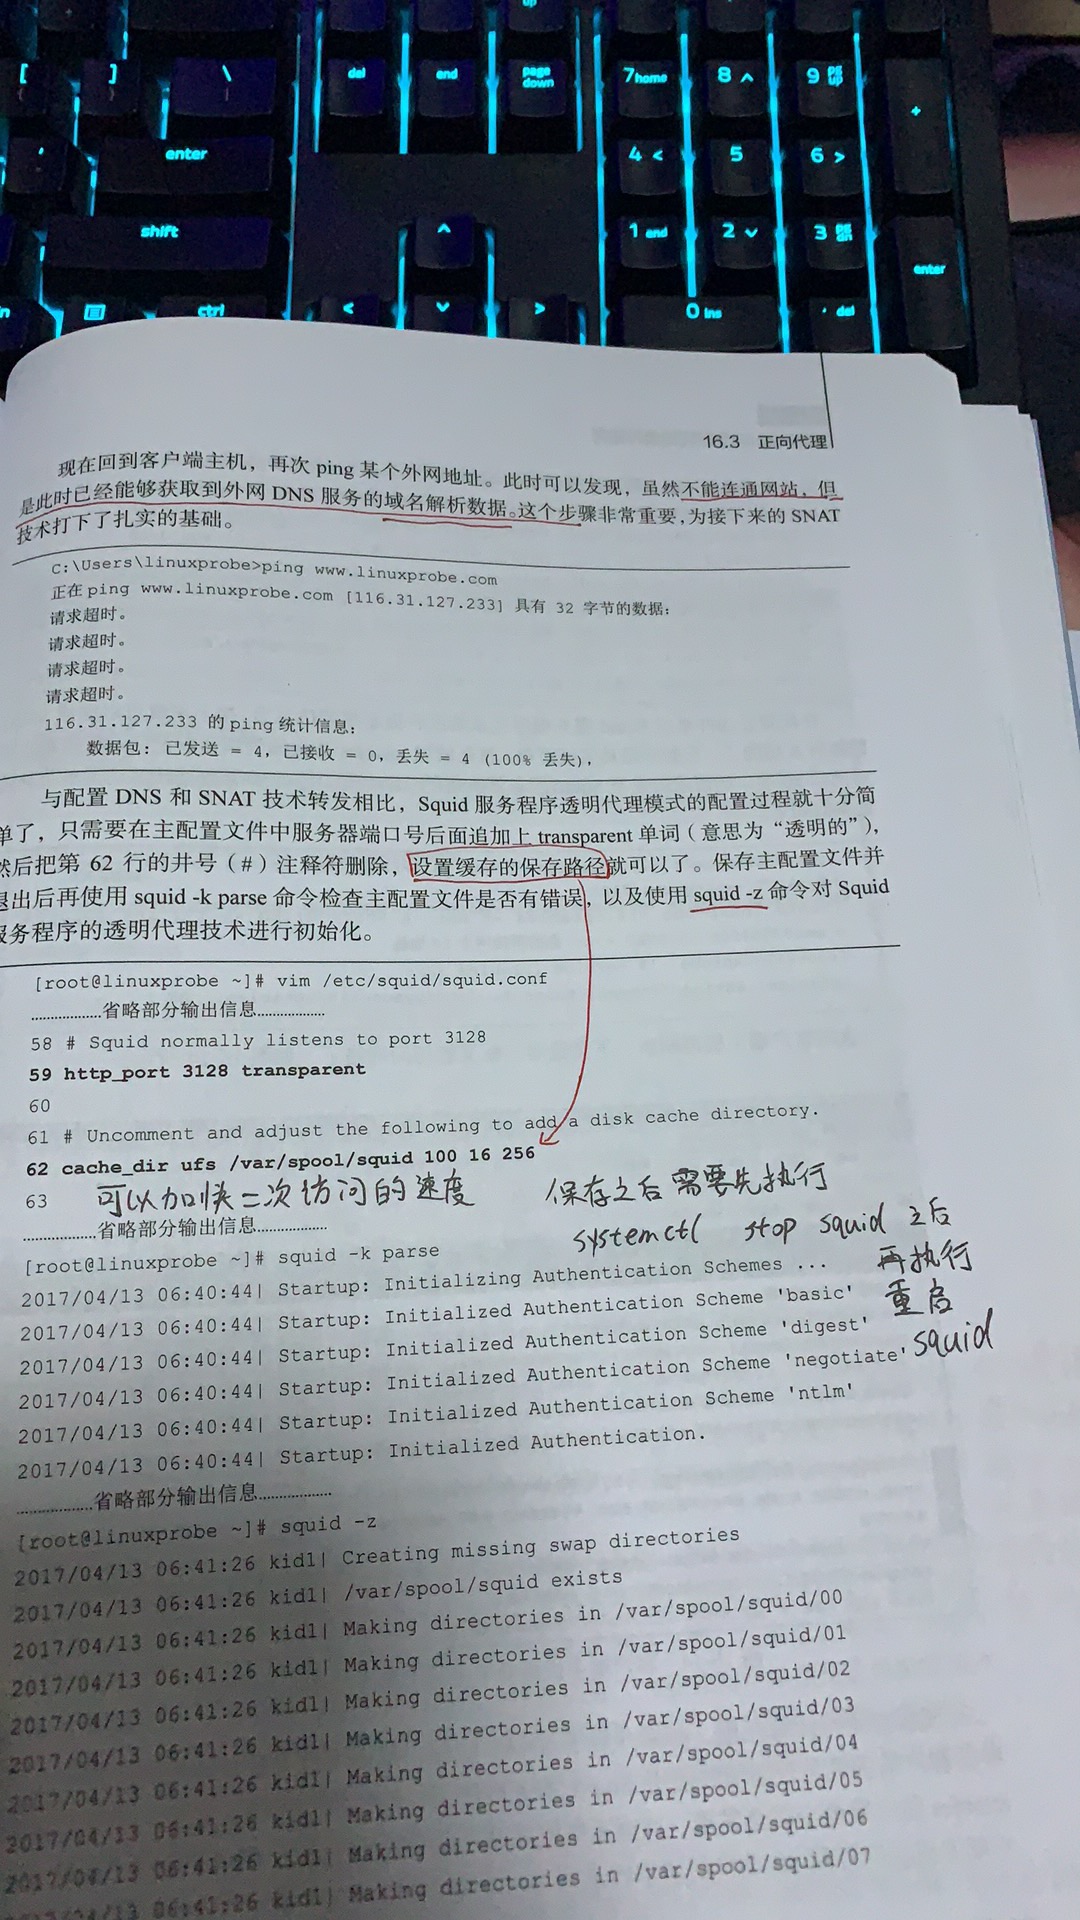 up
[
]
\
|
del
end
page down
7 home
8 ^
9 pg up
+
'
enter
4 <
5
6 >
shift
^
1 end
2 v
3 pg dn
enter
ctrl
<
v
>
0 ins
. del
16.3 正向代理
现在回到客户端主机，再次 ping 某个外网地址。此时可以发现，虽然不能连通网站，但
是此时已经能够获取到外网 DNS 服务的域名解析数据。这个步骤非常重要，为接下来的 SNAT
技术打下了扎实的基础。
C:\Users\linuxprobe>ping www.linuxprobe.com
正在 ping www.linuxprobe.com [116.31.127.233] 具有 32 字节的数据：
请求超时。
请求超时。
请求超时。
请求超时。
116.31.127.233 的 ping 统计信息：
数据包：已发送 = 4，已接收 = 0，丢失 = 4 (100% 丢失)，
与配置 DNS 和 SNAT 技术转发相比，Squid 服务程序透明代理模式的配置过程就十分简
单了，只需要在主配置文件中服务器端口号后面追加上 transparent 单词（意思为“透明的”），
然后把第 62 行的井号（#）注释符删除，设置缓存的保存路径就可以了。保存主配置文件并
退出后再使用 squid -k parse 命令检查主配置文件是否有错误，以及使用 squid -z 命令对 Squid
服务程序的透明代理技术进行初始化。
[root@linuxprobe ~]# vim /etc/squid/squid.conf
………………省略部分输出信息………………
58 # Squid normally listens to port 3128
59 http_port 3128 transparent
60
61 # Uncomment and adjust the following to add a disk cache directory.
62 cache_dir ufs /var/spool/squid 100 16 256
63 可以加快二次访问的速度
保存之后需要先执行
systemctl stop squid 之后
再执行
重启
squid
………………省略部分输出信息………………
[root@linuxprobe ~]# squid -k parse
2017/04/13 06:40:44| Startup: Initializing Authentication Schemes ...
2017/04/13 06:40:44| Startup: Initialized Authentication Scheme 'basic'
2017/04/13 06:40:44| Startup: Initialized Authentication Scheme 'digest'
2017/04/13 06:40:44| Startup: Initialized Authentication Scheme 'negotiate'
2017/04/13 06:40:44| Startup: Initialized Authentication Scheme 'ntlm'
2017/04/13 06:40:44| Startup: Initialized Authentication.
………………省略部分输出信息………………
[root@linuxprobe ~]# squid -z
2017/04/13 06:41:26 kid1| Creating missing swap directories
2017/04/13 06:41:26 kid1| /var/spool/squid exists
2017/04/13 06:41:26 kid1| Making directories in /var/spool/squid/00
2017/04/13 06:41:26 kid1| Making directories in /var/spool/squid/01
2017/04/13 06:41:26 kid1| Making directories in /var/spool/squid/02
2017/04/13 06:41:26 kid1| Making directories in /var/spool/squid/03
2017/04/13 06:41:26 kid1| Making directories in /var/spool/squid/04
2017/04/13 06:41:26 kid1| Making directories in /var/spool/squid/05
2017/04/13 06:41:26 kid1| Making directories in /var/spool/squid/06
2017/04/13 06:41:26 kid1| Making directories in /var/spool/squid/07